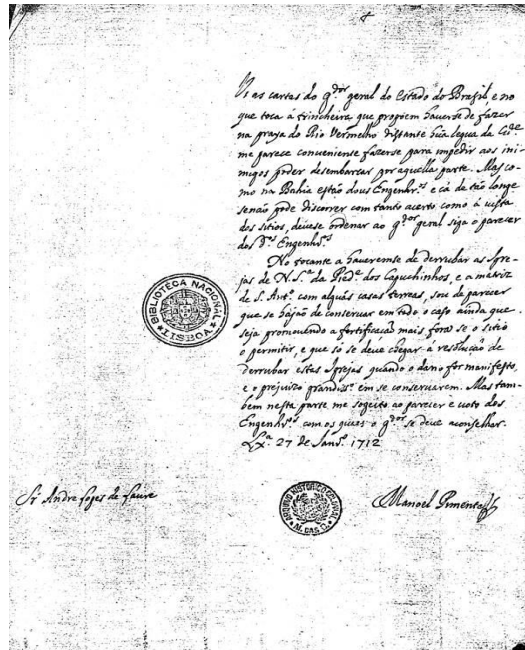 Vi as cartas do g.dor geral do Estado do Brasil, e no
que toca a trincheira que propoem haverse de fazer
na praya do Rio Vermelho distante hũa legua da Cid.e
me parece conveniente fazerse para impedir aos ini-
migos poder desembarcar por aquella parte. Mas co-
mo na Bahia estão dous Engenhr.os e cà de tão longe
senão pode discorrer com tanto acerto como à vista
dos sitios, devese ordenar ao g.dor geral siga o parecer
dos d.os Engenhr.os
No tocante a haveremse de derrubar as Igre-
jas de N. S.ra da Pied.e dos Capuchinhos, e a matriz
de S. Ant.o com alguãs casas terreas, sou de parecer
que se hajão de conservar em todo o caso ainda que
seja promovendo a fortificação mais fora se o sitio
o permitir, e que só se deve chegar à resolução de
derrubar estas Igrejas quando o dano for manifesto,
e o prejuizo grandiss.o em se conservarem. Mas tam-
bem nesta parte me sogeito ao parecer e voto dos
Engenhr.os com os quaes o g.dor se deve aconselhar.
Lx.a 27 de Janr.o 1712
Sr Andre Lopes de
Manoel Pimentel
BIBLIOTECA NACIONAL
LISBOA
ARQUIVO HISTÓRICO COLONIAL